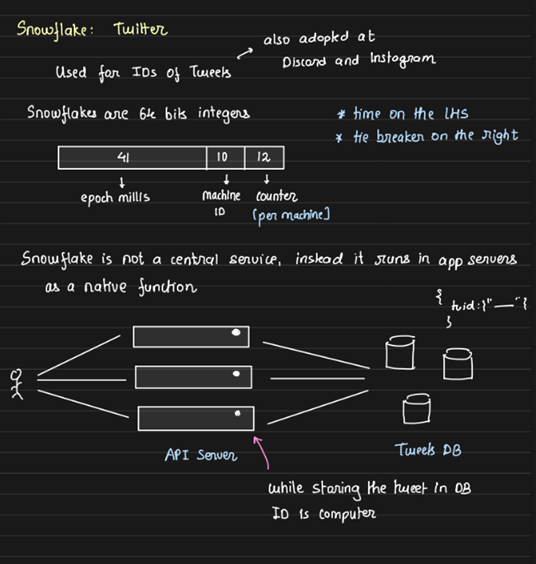 Snowflake: Twitter
also adopted at
Discord and Instagram
Used for IDs of Tweets
Snowflakes are 64 bits integers
* time on the LHS
* tie breaker on the right
41 10 12
epoch millis
machine ID
counter (per machine]
Snowflake is not a central service, instead it runs in app servers
as a native function
{
twid: {"—"}
}
API Server
Tweets DB
while storing the tweet in DB
ID is computer